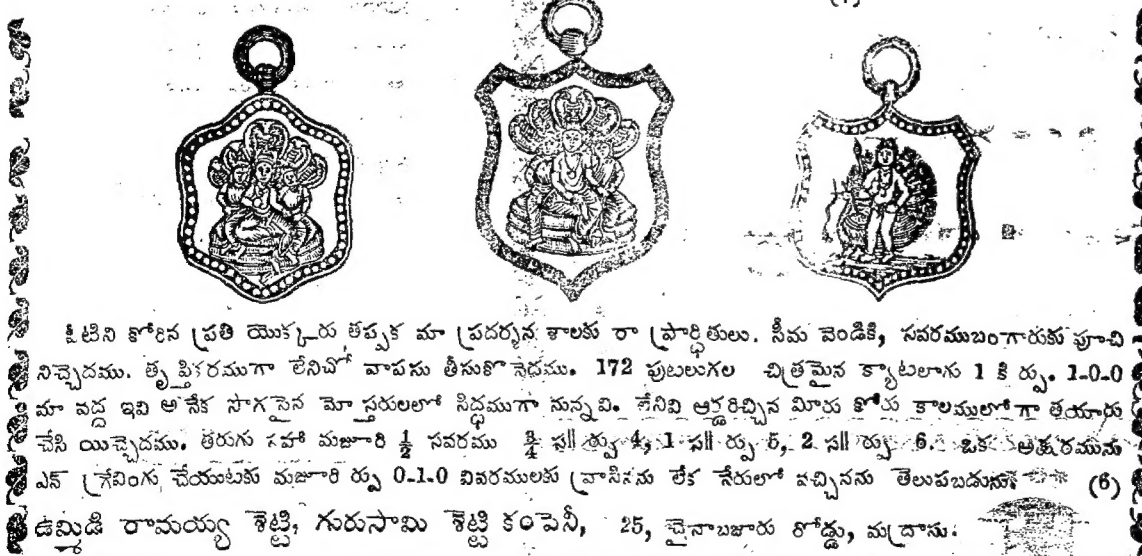 వీటిని కోరిన ప్రతి యొక్కరు తప్పక మా ప్రదర్శన శాలకు రా ప్రార్థితులు. సీమ వెండికి, సవరముబంగారుకు పూచి
నిచ్చెదము. తృప్తికరముగా లేనిచో వాపసు తీసుకొనెదము. 172 పుటలుగల చిత్రమైన క్యాటలాగు 1 కి రు. 1-0-0
మా వద్ద ఇవి అనేక సొగసైన మోస్తరులలో సిద్ధముగా నున్నవి. లేనివి ఆర్డరిచ్చిన మీరు కోరు కాలములోగా తయారు
చేసి యిచ్చెదము. తరుగు సహా మజూరి ½ సవరము ¾ స॥ రు 4, 1 స॥ రు 5, 2 స॥ రు 6. ఒక అక్షరమును
ఎన్ గ్రేవింగు చేయుటకు మజూరి రు 0-1-0 వివరములకు వ్రాసినను లేక నేరులో వచ్చినను తెలుపబడును. (6)
ఉమ్మిడి రామయ్య శెట్టి, గురుసామి శెట్టి కంపెనీ, 25, చైనాబజారు రోడ్డు, మద్రాసు.